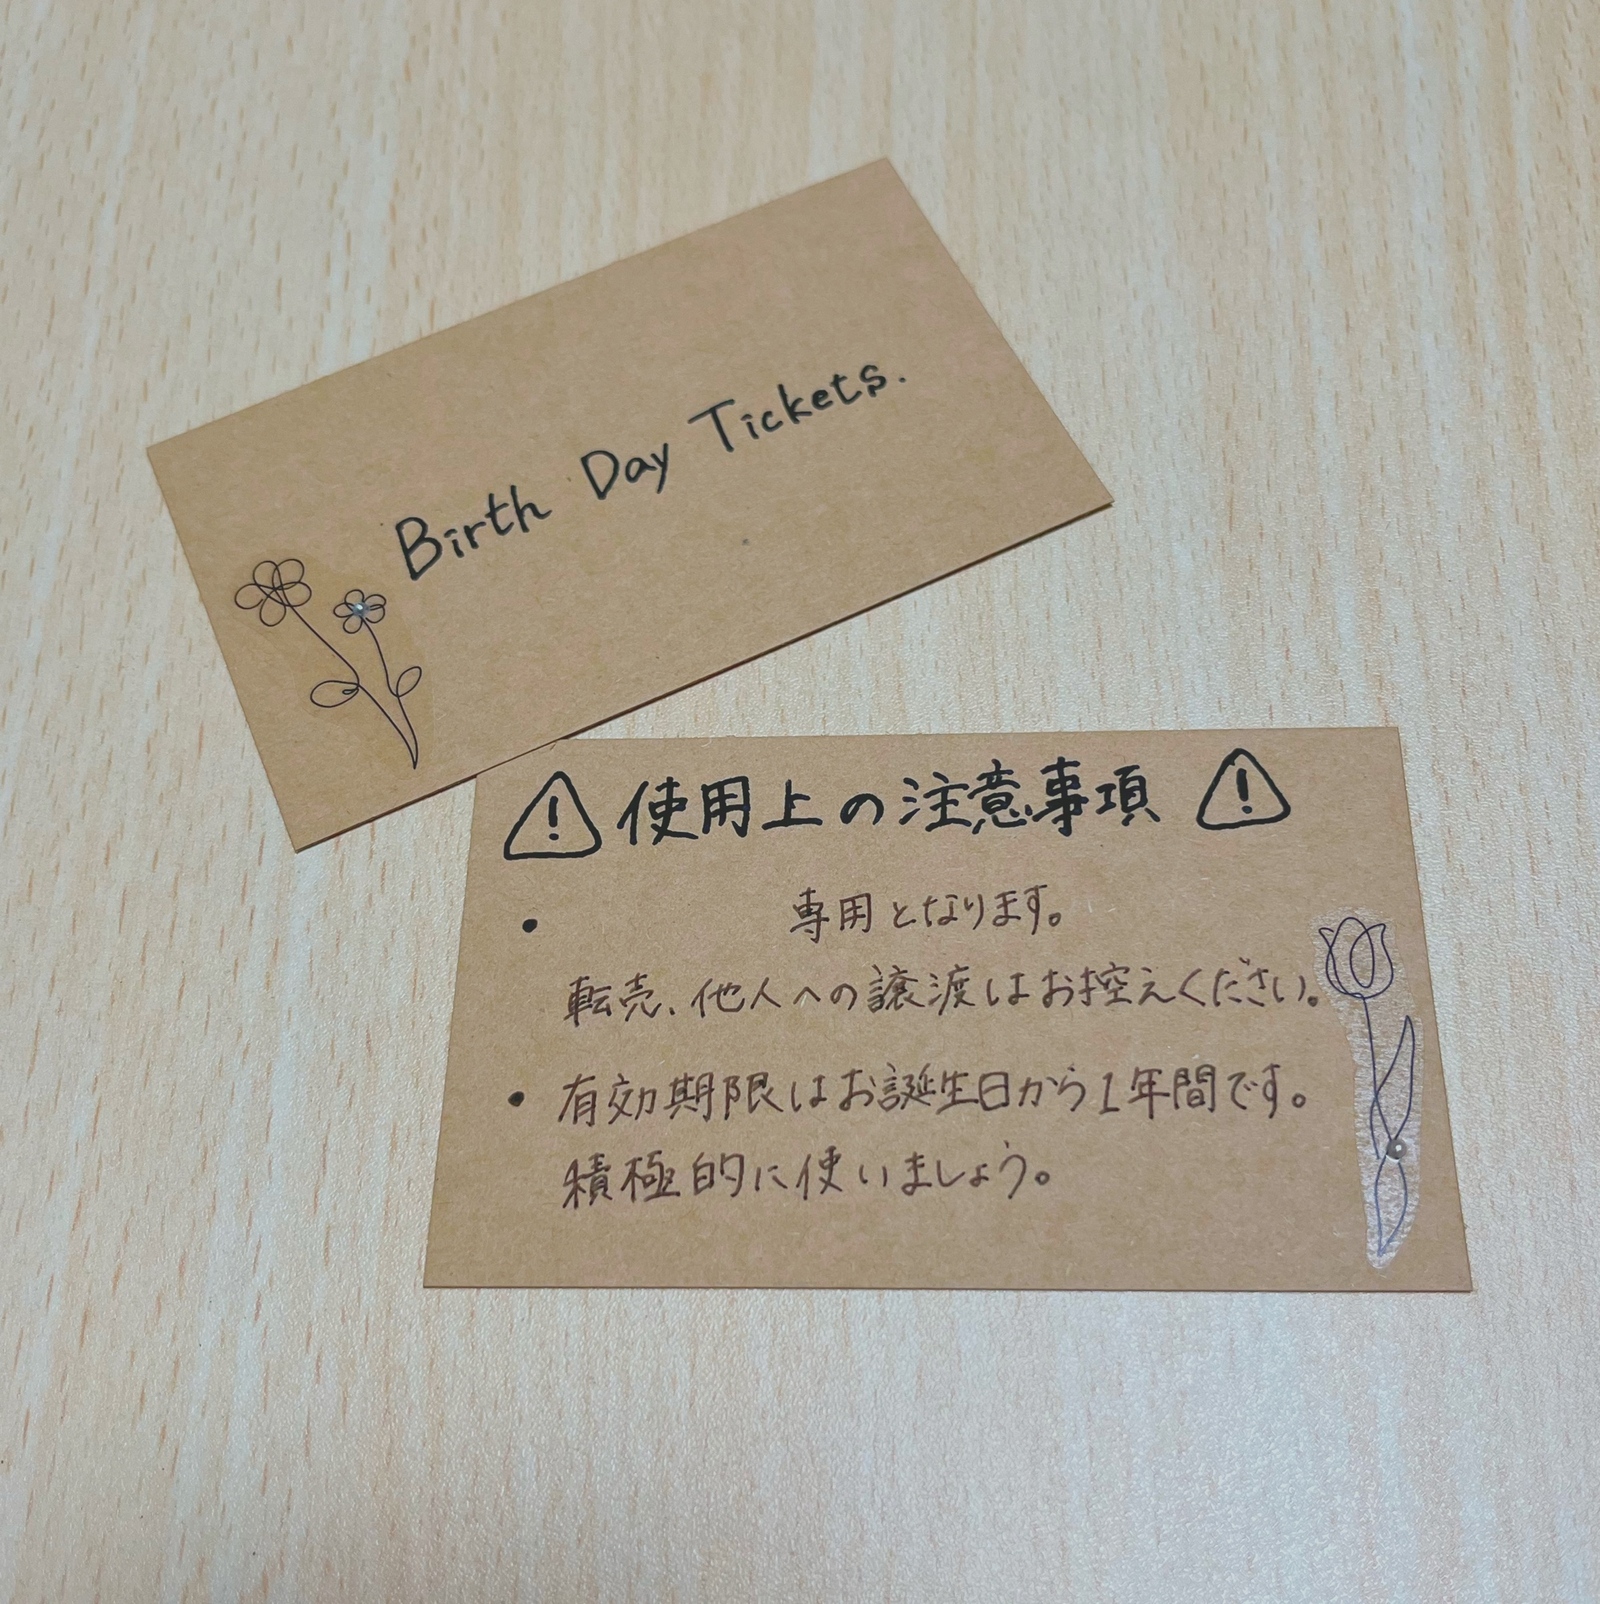 Birth Day Tickets.
⚠ 使用上の注意事項 ⚠
• 専用となります。
転売、他人への譲渡はお控えください。
• 有効期限はお誕生日から1年間です。
積極的に使いましょう。